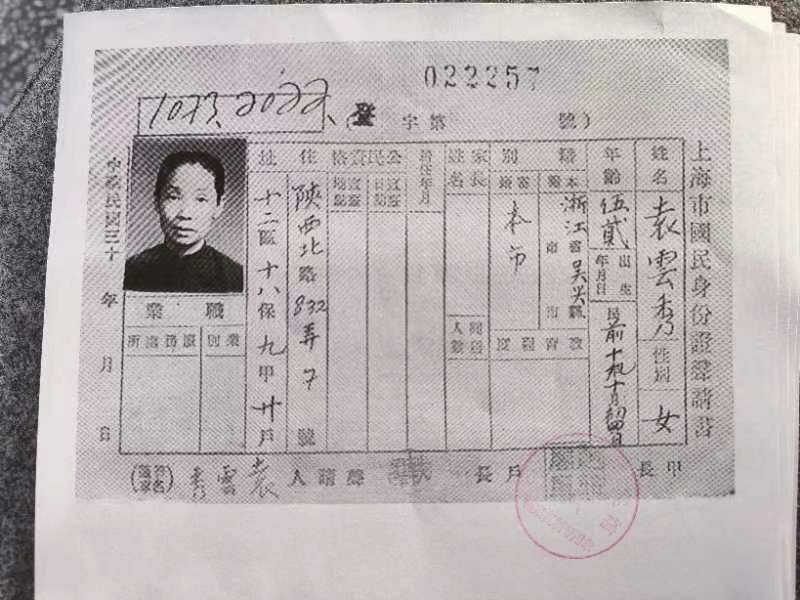 022257
1073.2022.
(登字第 號)
上海市國民身份證聲請書
姓名 袁雲秀 性別 女
年齡 伍貳 出生年月日 民前十九十月
籍別 本籍 浙江省 吳興縣 市
寄籍 本市
教育程度
家長姓名
公民資格
住址 陝西北路832弄7號
十二區十八保九甲廿戶
職業
業別
服務處所
中華民國三十 年 月 日
甲長
戶長
聲請人 袁雲秀